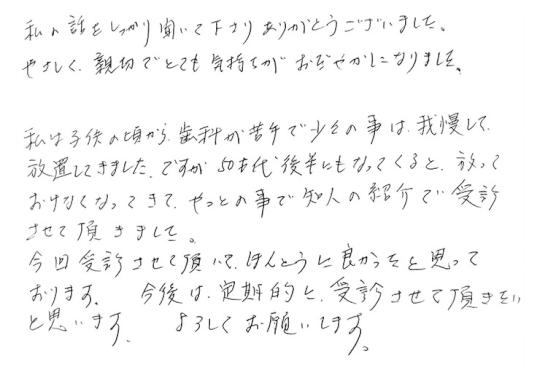 私の話をしっかり聞いて下さりありがとうございました。
やさしく、親切でとても気持ちがおだやかになりました。
私は子供の頃から、歯科が苦手で少々の事は、我慢して、
放置してきました。ですが50才代後半にもなってくると、放って
おけなくなってきて、やっとの事で知人の紹介で受診
させて頂きました。
今回受診させて頂いて、ほんとうに良かったと思って
おります。 今後は、定期的に、受診させて頂きたい
と思います。 よろしくお願いします。